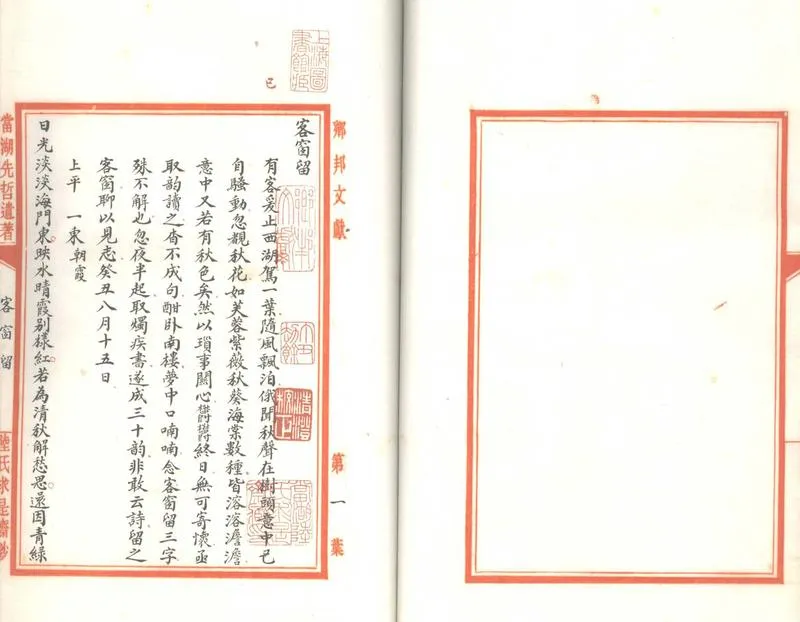 上海圖書館藏
鄉邦文獻
第一葉
客窗留
有客爰止西湖駕一葉隨風飄泊俄聞秋聲在樹頭意中已
自騷動忽覩秋花如芙蓉紫薇秋葵海棠數種皆溶溶澹澹
意中又若有秋色矣然以瑣事關心鬱鬱終日無可寄懷亟
取韵讀之杳不成句酣卧南樓夢中口喃喃念客窗留三字
殊不解也忽夜半起取燭疾書遂成三十韵非敢云詩留之
客窗聊以見志癸丑八月十五日
上平 一東 朝霞
日光淡淡海門東映水晴霞别樣紅若為清秋解愁思還因青綠
當湖先哲遺著
客窗留
陸氏求是齋鈔